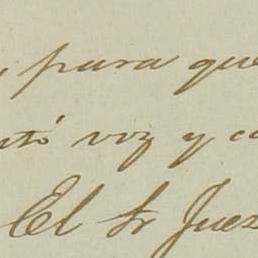 , para que
voz y
El Sr Juez